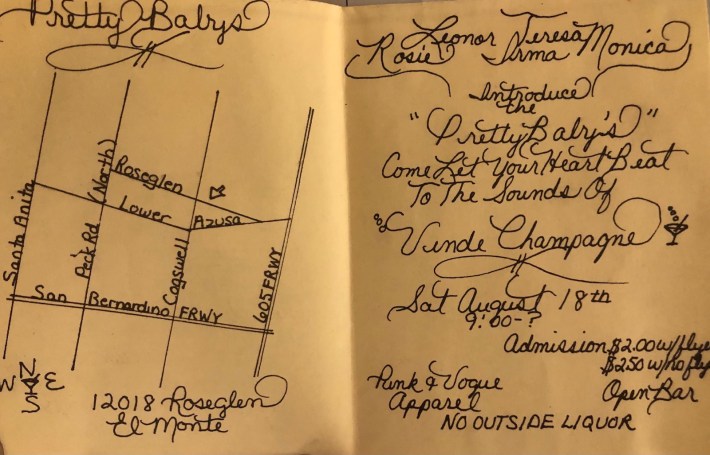 Pretty Babys
Santa Anita
Peck Rd
(North)
Roseglen
Lower
Azusa
Cogswell
605 FRWY
San Bernardino FRWY
N
W E
S
12018 Roseglen
El Monte
Leonor Teresa
Rosie Irma Monica
Introduce
the
"Pretty Baby's"
Come Let Your Heart Beat
To The Sounds Of
Vinde Champagne
Sat August 18th
9:00-?
Admission $2.00 w/flye
$2.50 w/no fly
Punk & Vogue
Apparel
Open Bar
NO OUTSIDE LIQUOR